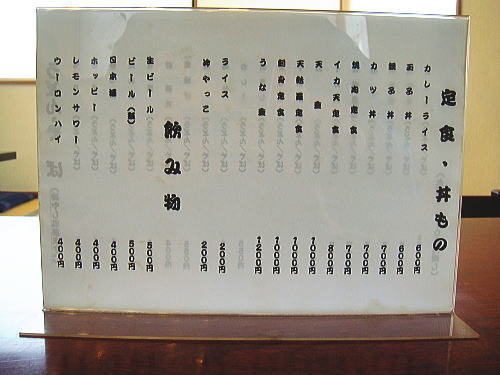 定食、丼もの
カレーライス 600円
玉子丼 600円
親子丼 700円
カツ丼 700円
焼肉定食 700円
イカ天定食 800円
天丼 1000円
天麩羅定食 1000円
刺身定食 1000円
うな重 1200円
ライス 200円
冷やっこ 200円
飲み物
生ビール 500円
ビール(瓶) 500円
日本酒 400円
ホッピー 400円
レモンサワー 400円
ウーロンハイ 400円